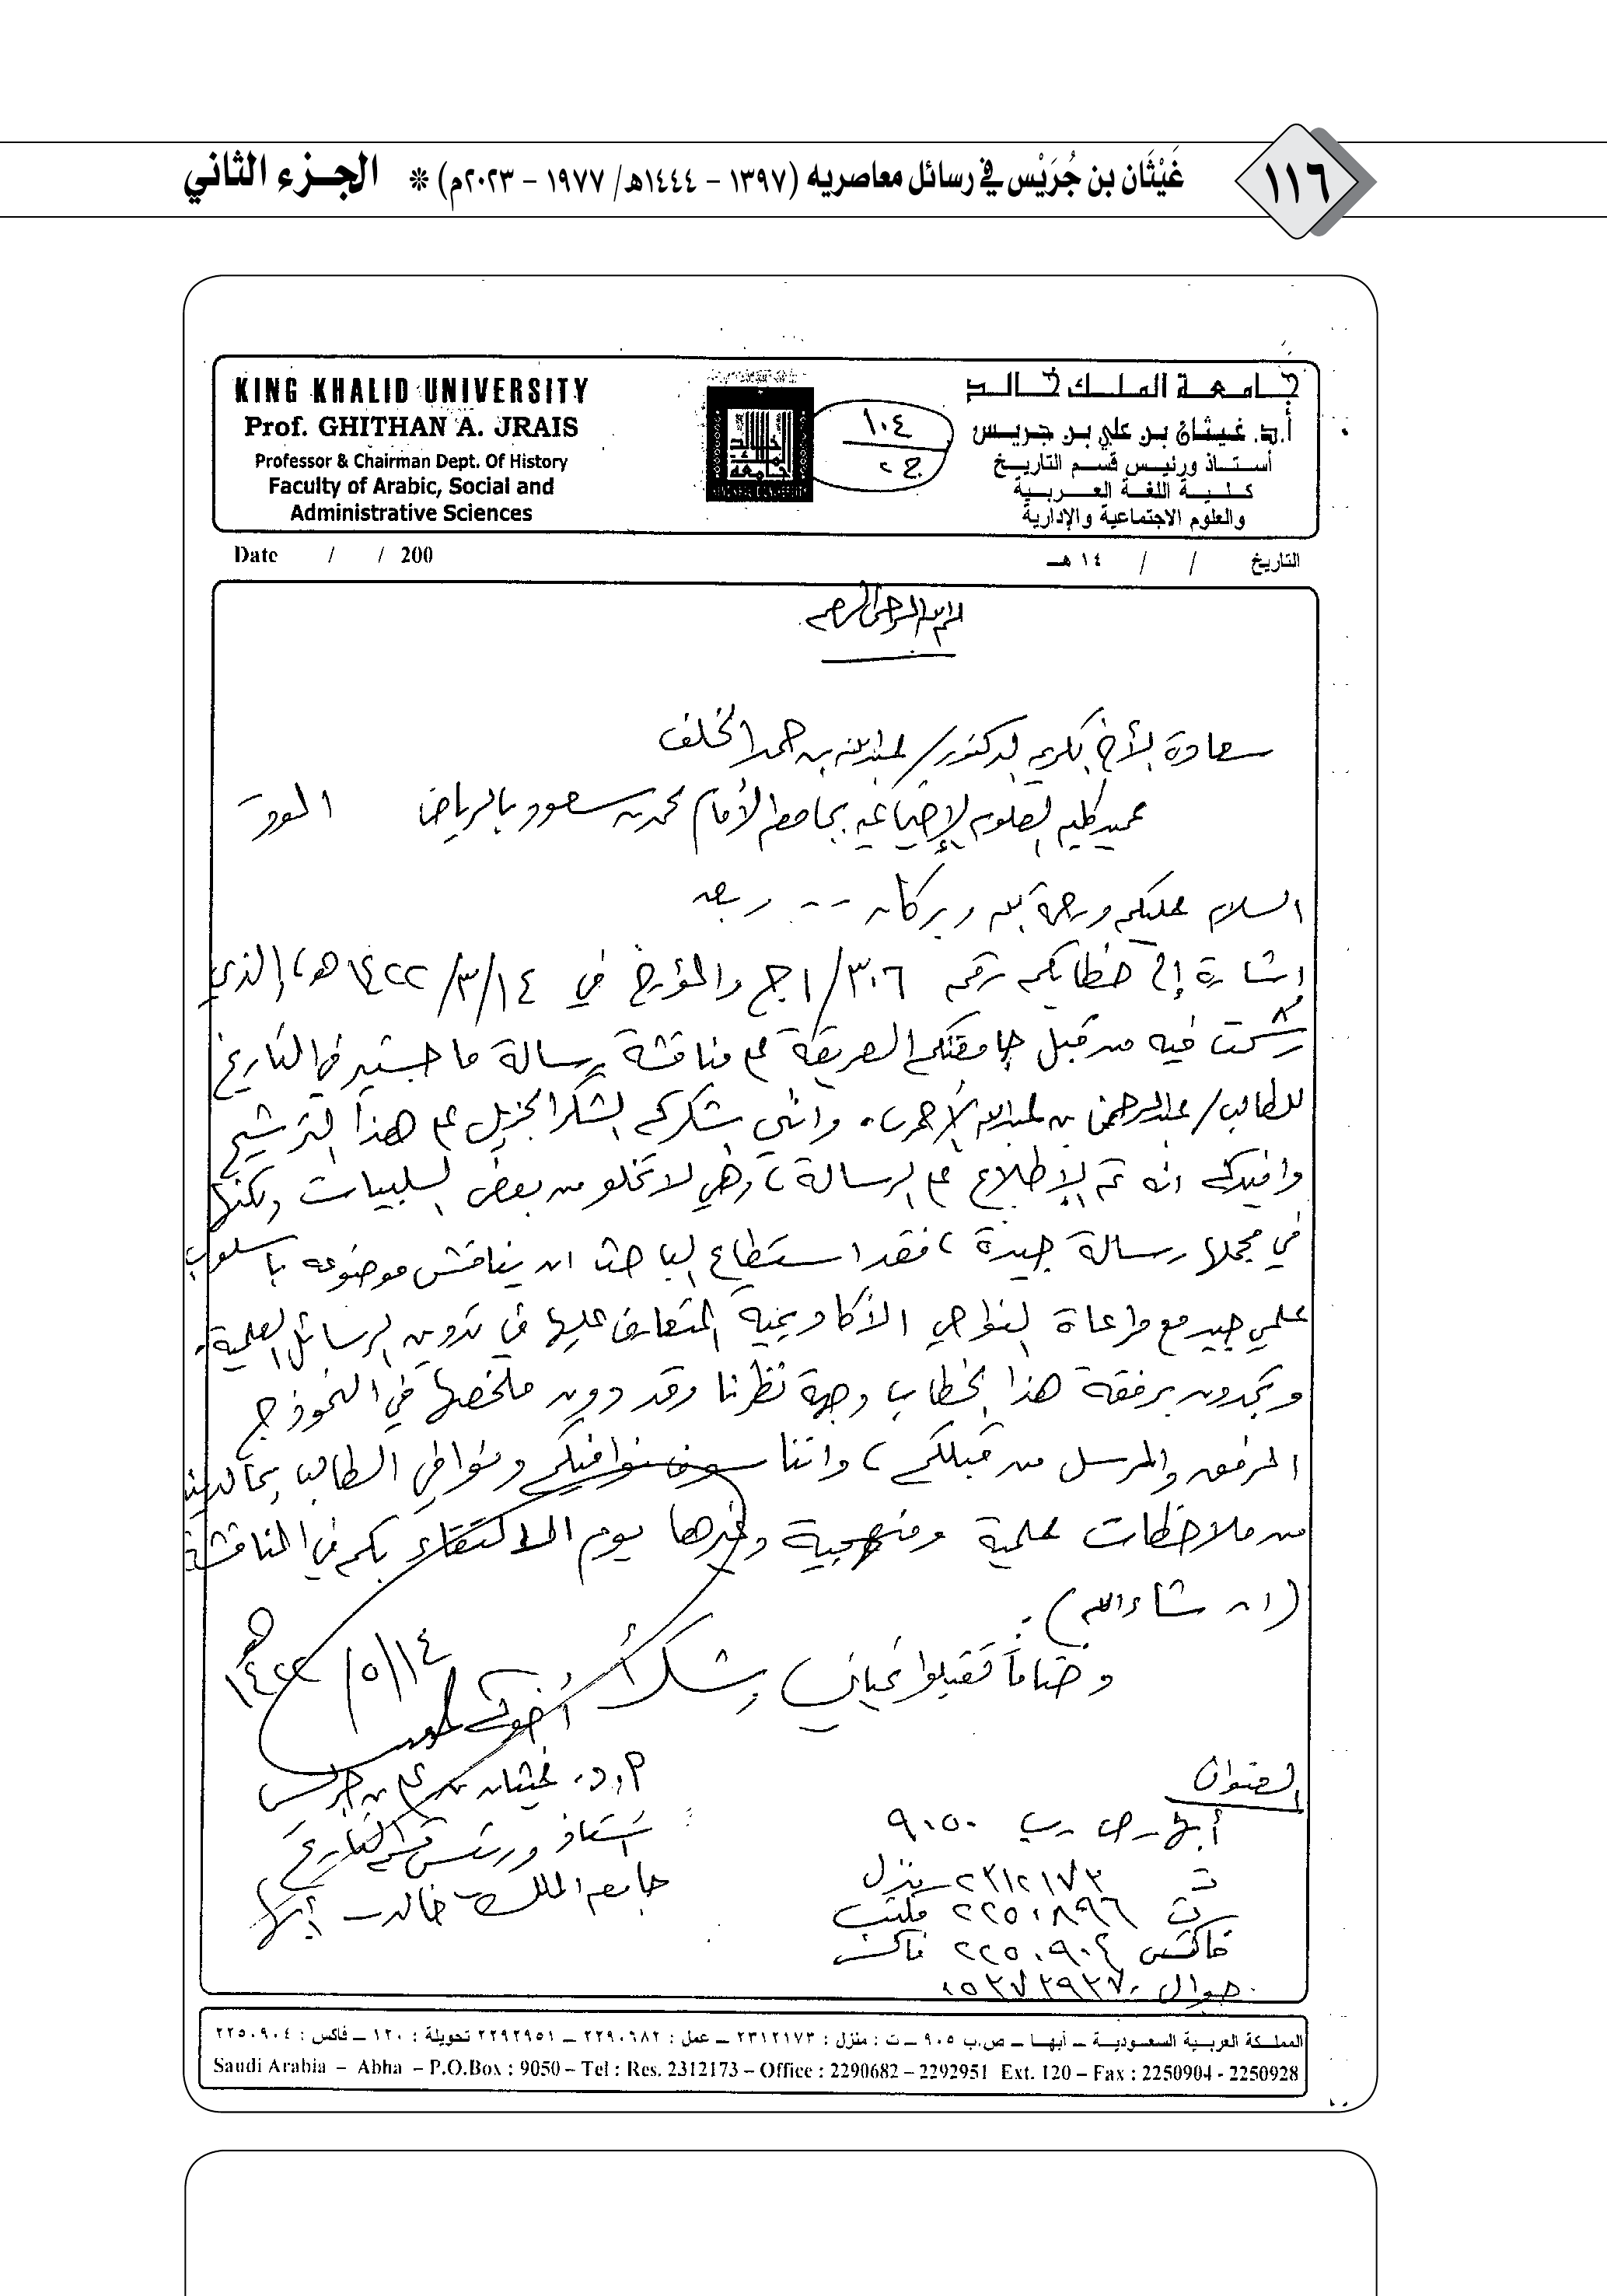 ١١٦
غَيْثَان بن جُرَيْس في رسائل معاصريه (١٣٩٧ - ١٤٤٤هـ/ ١٩٧٧ - ٢٠٢٣م) * الجزء الثاني
جامعة الملك خالد
أ.د. غيثان بن علي بن جريس
أستاذ ورئيس قسم التاريخ
كلية اللغة العربية
والعلوم الاجتماعية والإدارية
١٠٤
ج٢
KING KHALID UNIVERSITY
Prof. GHITHAN A. JRAIS
Professor & Chairman Dept. Of History
Faculty of Arabic, Social and
Administrative Sciences
التاريخ / / ١٤ هـ
Date / / 200
بسم الله الرحمن الرحيم
سعادة الأخ الكريم الدكتور/ عبدالله بن حمد الخلف
عميد كلية العلوم الإجتماعية بجامعة الأمام محمد بن سعود بالرياض الموقر
السلام عليكم ورحمة الله وبركاته -- وبعد
اشارة إلى خطابكم رقم ٣٠٦/١ج والمؤرخ في ١٤/٣/١٤٢٢هـ، الذي
رشحت فيه من قبل جامعتكم العريقة على مناقشة رسالة ماجستير في التاريخ
للطالب/ عبدالرحمن بن عبدالله الأحمري. وانني اشكركم الشكر الجزيل على هذا الترشيح
وافيدكم انه تم الإطلاع على الرسالة، وهي لا تخلو من بعض السلبيات ولكنها
في مجملها رسالة جيدة، فقد استطاع الباحث ان يناقش موضوعه بأسلوب
علمي جيد مع مراعاة النواحي الأكاديمية المتعارف عليها في تدوين الرسائل العلمية.
وتجدون برفقة هذا الخطاب وجهة نظرنا وقد دون ملخصها في النموذج
المرفق والمرسل من قبلكم، واننا سوف نوافيكم ونوافي الطالب بما لدينا
من ملاحظات علمية ومنهجية وغيرها يوم الالتقاء بكم في المناقشة
(ان شاء الله).
وختاماً تقبلوا تحياتي وشكري
أخوكم
١٤/٥/١٤٢٢هـ
أ.د. غيثان بن علي بن جريس
استاذ ورئيس قسم التاريخ
جامعة الملك خالد - أبها
العنوان
أبها - ص ب ٩٠٥٠
ت ٢٣١٢١٧٣ منزل
ت ٢٢٥٠٨٩٦ مكتب
فاكس ٢٢٥٠٩٠٤ فاكس
جوال
المملكة العربية السعودية – أبها – ص.ب ٩٠٥ – ت : منزل : ٢٣١٢١٧٣ – عمل : ٢٢٩٠٦٨٢ – ٢٢٩٢٩٥١ تحويلة : ١٢٠ – فاكس : ٢٢٥٠٩٠٤
Saudi Arabia – Abha – P.O.Box : 9050 – Tel : Res. 2312173 – Office : 2290682 – 2292951 Ext. 120 – Fax : 2250904 - 2250928